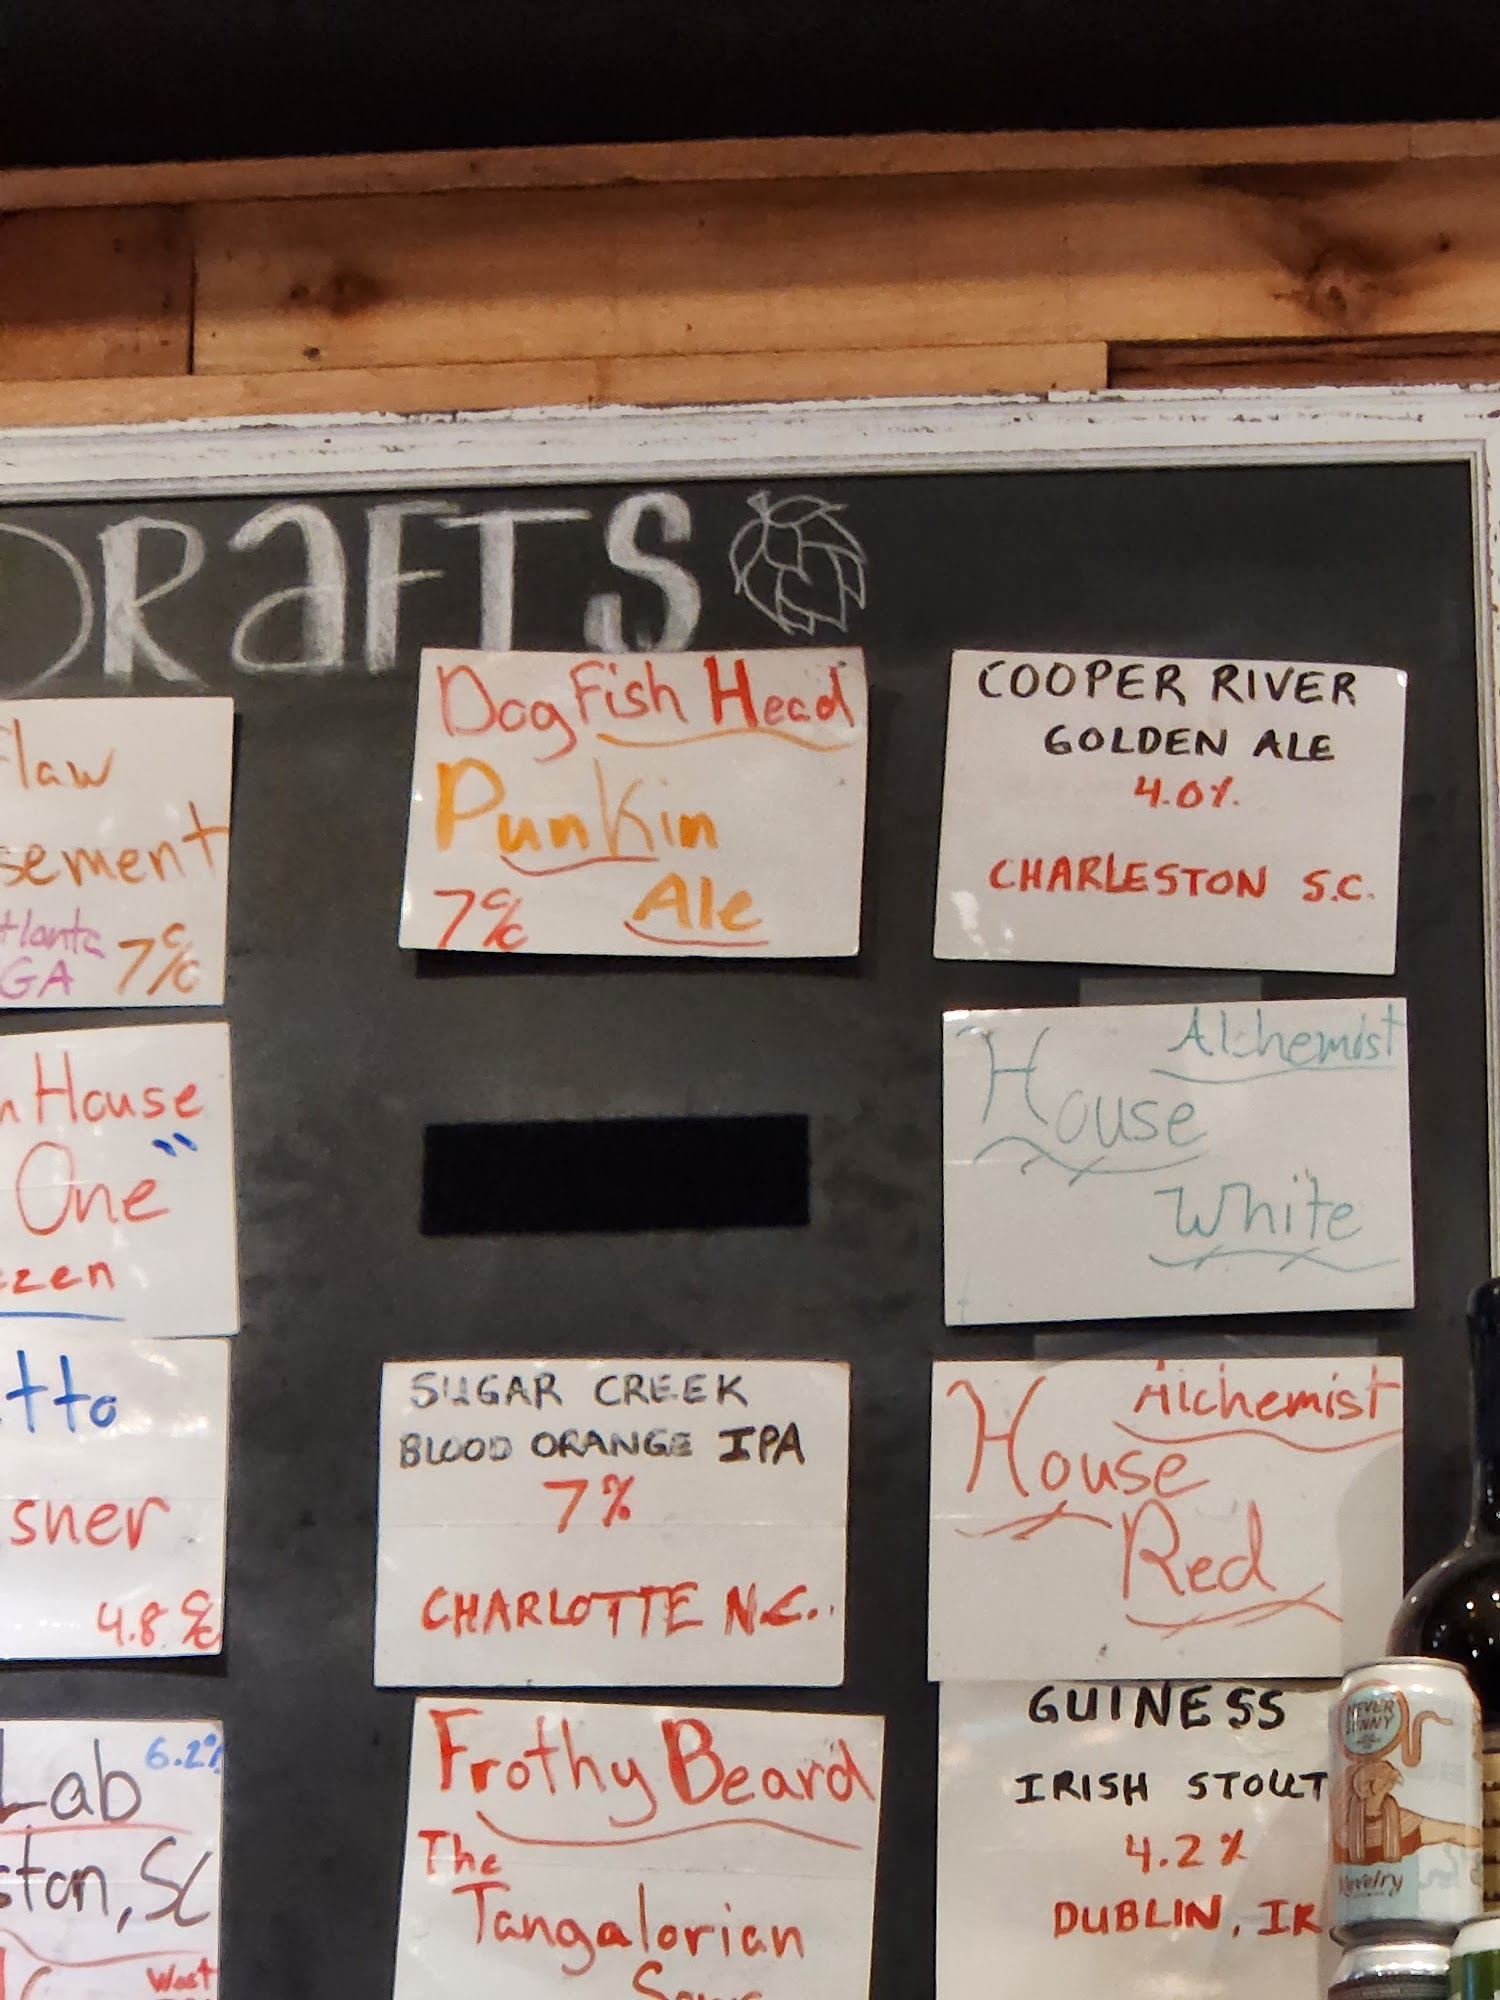 DRAFTS
law
sement
tlanta
GA 7%
House
One"
zen
tto
sner
4.8%
Lab 6.2%
ston, SC
West
Dogfish Head
Punkin
Ale
7%
SUGAR CREEK
BLOOD ORANGE IPA
7%
CHARLOTTE N.C.
Frothy Beard
The
Tangalorian
COOPER RIVER
GOLDEN ALE
4.0%
CHARLESTON S.C.
Alchemist
House
White
Alchemist
House
Red
GUINESS
IRISH STOUT
4.2%
DUBLIN, IR
Novelry